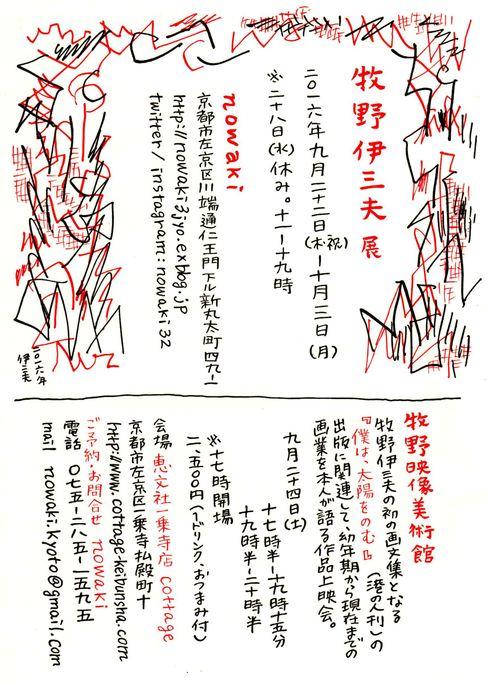 牧野伊三夫展
二〇一六年九月二十二日(木・祝)ー十月三日(月)
※二十八日(水)休み。十一ー十九時
nowaki
京都市左京区川端通仁王門下ル新丸太町四九ー一
http://nowaki3jyo.exblog.jp
twitter/instagram:nowaki32
二〇一六年
伊三夫
牧野映像美術館
牧野伊三夫の初の画文集となる
『僕は、太陽をのむ』(港の人刊)の
出版に関連して、幼年期から現在までの
画業を本人が語る作品上映会。
九月二十四日(土)
十七時半ー十九時十五分
十九時半ー二十時半
※十七時開場
二、五〇〇円(一ドリンク、おつまみ付)
会場 恵文社一乗寺店 cottage
京都市左京区一乗寺払殿町十
http://www.cottage-keibunsha.com
ご予約・お問合せ nowaki
電話 〇七五ー二八五ー一五九五
mail nowaki.kyoto@gmail.com